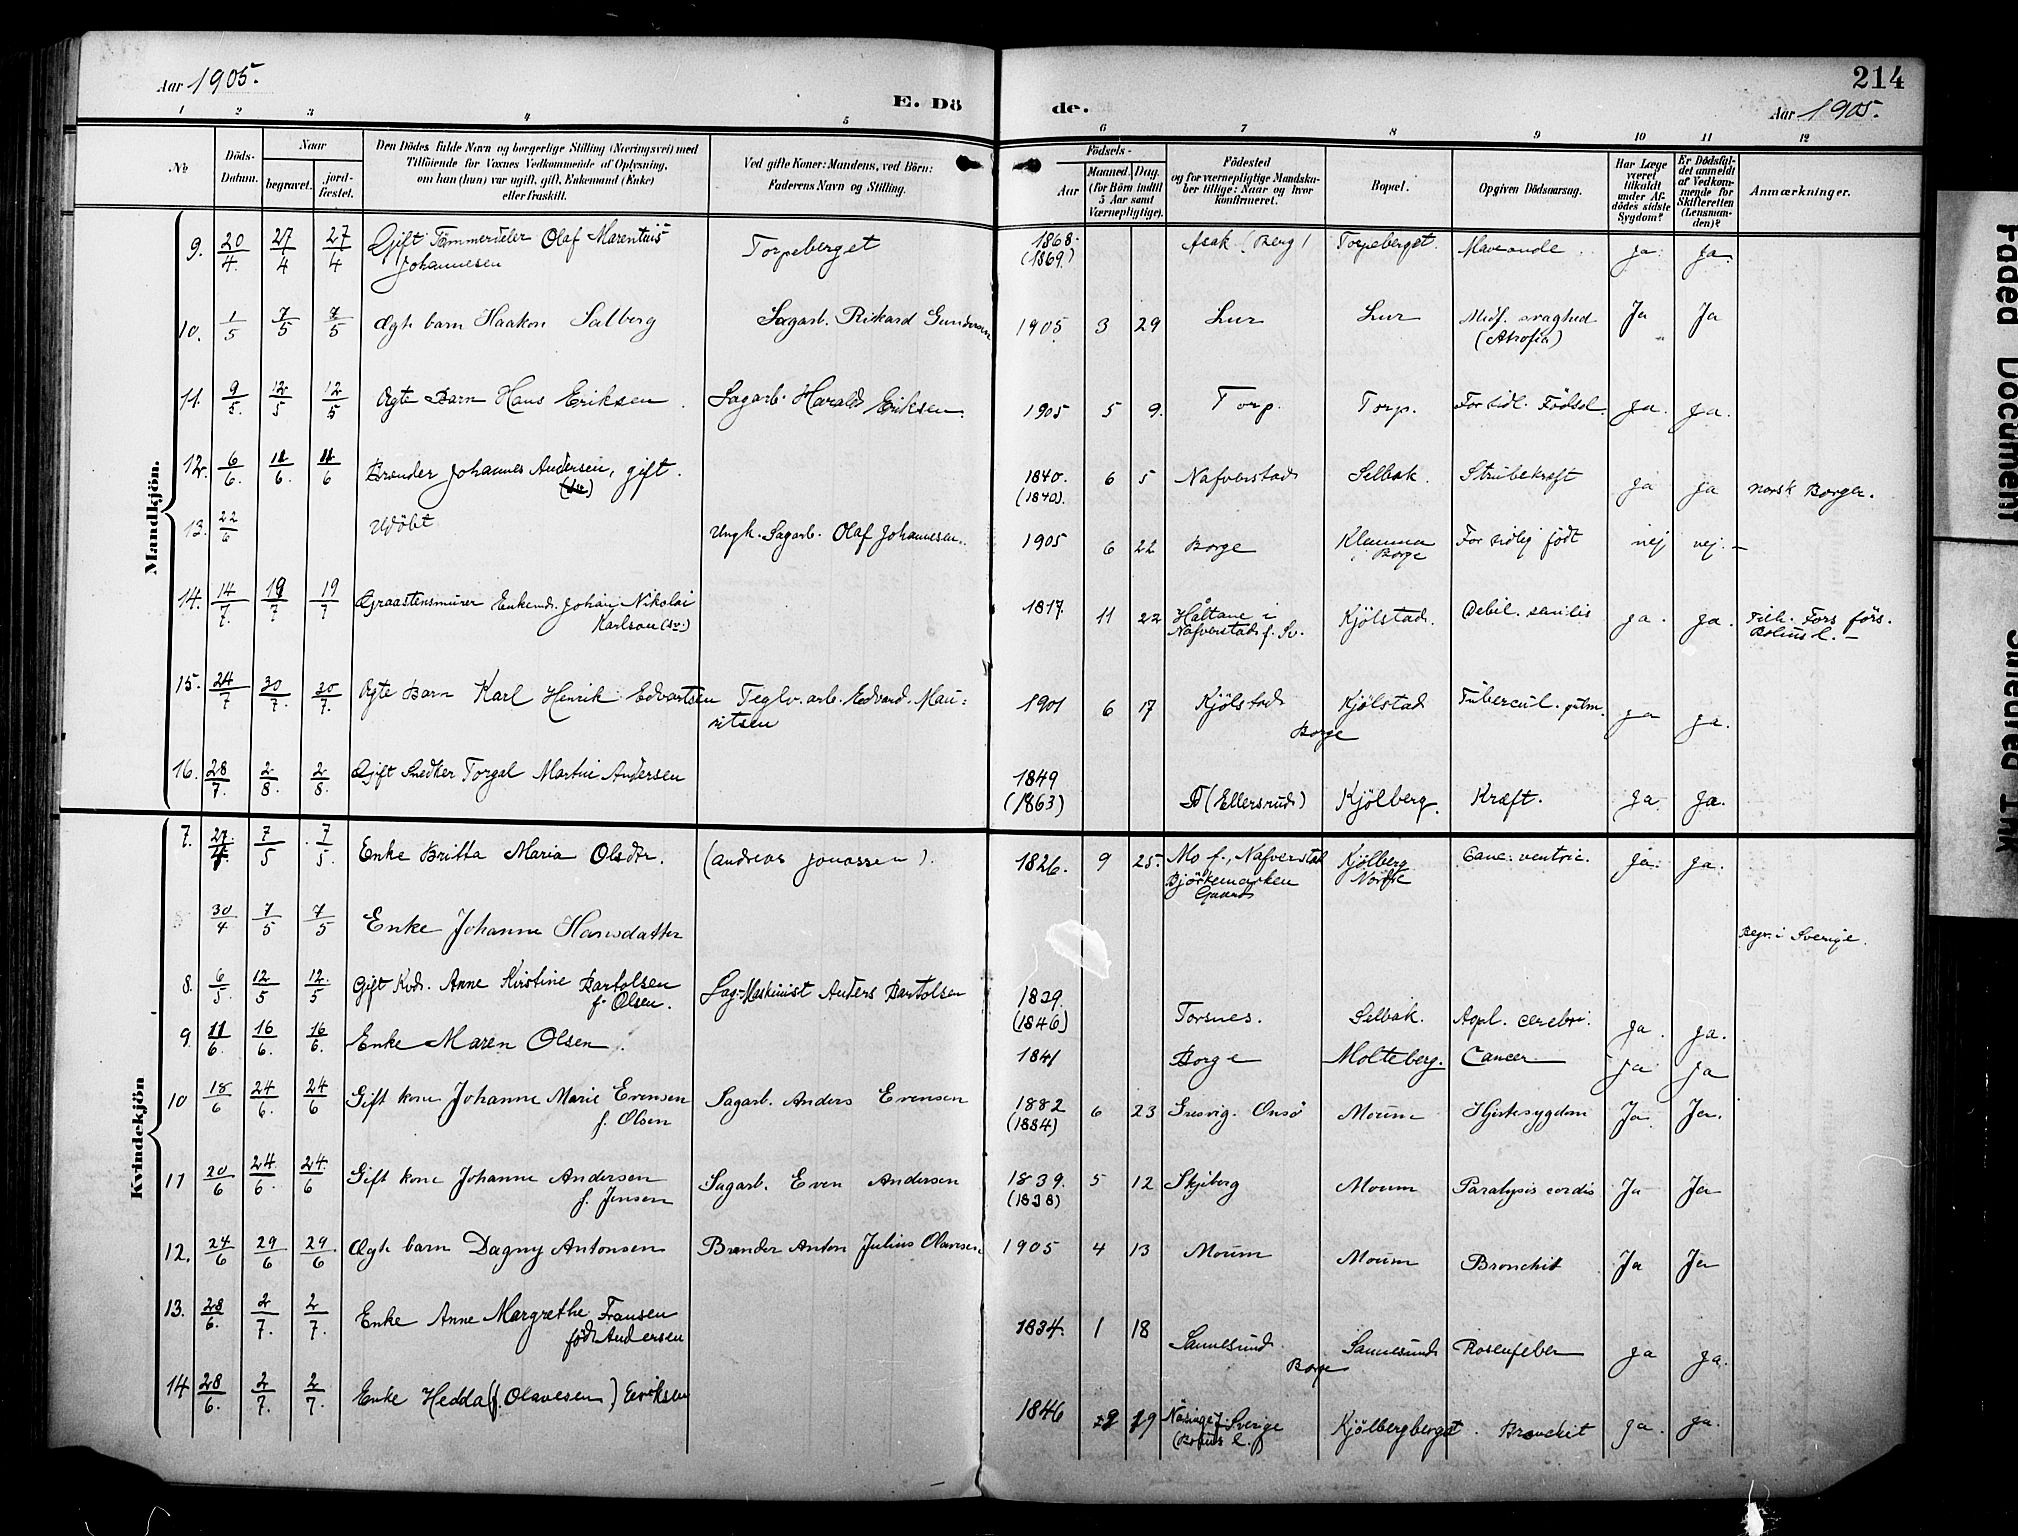 Aar 1905.
E. Dö de.
214
Aar 1905.
1 2 3 4 5 6 7 8 9 10 11 12
No
Döds-Datum.
Naar
begravet.
jord-fæstet.
Den Dödes fulde Navn og borgerlige Stilling (Næringsvei) med
Tilföiende for Voxnes Vedkommende af Oplysning,
om han (hun) var ugift, gift, Enkemand (Enke)
eller fraskilt.
Ved gifte Koner: Mandens, ved Börn:
Faderens Navn og Stilling.
Födsels-
Aar
Maaned. Dag.
(for Börn indtil
5 Aar samt
Værnepligtige).
Födested
og for værnepligtige Mandska-
ber tillige: Naar og hvor
konfirmeret.
Bopæl.
Opgiven Dödsaarsag.
Har Læge
været
tilkaldt
under Af-
dödes sidste
Sygdom?
Er Dödsfal-
det anmeldt
af Vedkom-
mende for
Skifteretten
(Lensman-
den)?
Anmærkninger.
Mandkjön.
9. 20/4. 27/4 27/4 Gift Tømmerdeler Olaf Marentius Torpeberget 1868. Asak (Berg) Torpeberget. Maveonde Ja. Ja.
Johannesen (1869.)
10. 1/5 7/5 7/5 Ægte barn Haakon Salberg Sagarb. Rikard Gundersen 1905 3 29 Lur Lur Medf. svaghed Ja Ja
(Atrofia)
11. 9/5. 12/5 12/5 Ægte Barn Hans Eriksen Sagarb. Harald Eriksen. 1905 5 9. Torp. Torp. For tidl. Födsel Ja. Ja.
12. 6/6. 11/6. 11/6 Brænder Johannes Andersen, gift. 1840. 6 5 Nafverstad Selbak. Strubekræft Ja Ja norsk Borger.
(1840).
13. 22/6 Udöbt Ungk. Sagarb. Olaf Johannesen. 1905 6 22 Borge Klemma For tidlig födt nej nej. -
i Borge
14. 14/7. 19/7 19/7 Graastensmurer Enkemd. Johan Nikolai 1817. 11 22 Håltane i Kjölstad. Debil. senilis Ja. Ja. Tilh. Fors förs.
Karlson (sv.) Nafverstads f. Sv. Bohusl. -
15. 24/7 30/7. 30/7. Ægte Barn Karl Henrik Edvartsen Teglv.arb. Edvard Mau- 1901 6 17 Kjölstad Kjölstad Tubercul. pulm. Ja Ja.
ritsen Borge
16. 28/7. 2/8 2/8 Gift Snedker Torgal Martin Andersen 1849 (Ellersrud) Kjölberg. Kræft. Ja. Ja.
(1863)
Kvindekjön
7. 27/4 7/5 7/5. Enke Britta Maria Olsdtr. (Andreas Jonassen). 1826. 9 25. Mo f., Nafverstad Kjölberg Canc. ventric. Ja. Ja.
Björkemarken Norske
Gaard
30/4 7/5 7/5 Enke Johanne Hansdatter Begr. i Sverige.
8. 6/5. 12/5 12/5 Gift Kvd. Anne Kirstine Bartolsen Sag-Maskinist Anders Bartolsen 1829. Torsnes. Selbak. Apl. cerebri. Ja. Ja.
f. Olsen. (1846)
9. 11/6. 16/6. 16/6. Enke Maren Olsen. 1841 Borge Molteberg. Cancer Ja Ja
10 18/6 24/6. 24/6 Gift kone Johanne Marie Evensen Sagarb. Anders Evensen 1882 6 23 Gresvig. Onsö Moum Hjertesygdom Ja. Ja.
f. Olsen (1884)
11 20/6 24/6. 24/6 Gift kone Johanne Andersen Sagarb. Even Andersen 1839. 5 12 Skjeberg Moum Paralysis cordis Ja Ja
f. Jensen (1838)
12. 24/6 29/6 29/6 Ægte barn Dagny Antonsen Brænder Anton Julius Olavesen 1905 4 13 Moum Moum Bronchit Ja Ja
13. 28/6. 2/7. 2/7. Enke Anne Margrethe Fransen 1834. 1 18 Sannesund. Sannesund Rosenfeber Ja Ja.
födt Andersen Borge
14 28/6. 2/7. 2/7. Enke Hedda (f. Olavesen) Eeriksen 1846 29 Näsinge f. Sverige Kjölbergberget. Bronchit Ja. Ja.
(Bohus l.)
Faded Document
Smeared Ink